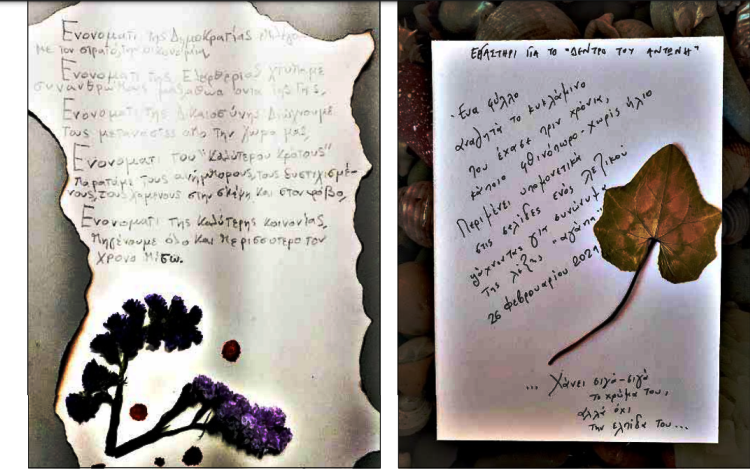 Ενονοματι της Δημοκρατίας
με τον στρατό, την οικονομία,
Ενονοματι της Ελεφθερίας χτυπάμε
συνανθρώπους μας
Ενονοματι της Δικαιοσύνης Διώχνουμε
τους μετανάστες απο την χώρα μας,
Ενονοματι του "Καλύτερου Κράτους"
παρατάμε τους ανήμπορους, τους δυστιχισμέ-
νους, τους χαμένους στην σκέψη και στον φόβο,
Ενονοματι της καλύτερης κοινονίας,
πηγένουμε όλο και περισσοτερο τον
χρονο πίσω.
ΕΡΓΑΣΤΗΡΙ ΓΙΑ ΤΟ "ΔΕΝΤΡΟ ΤΟΥ ΑΝΤΩΝΗ"
Ένα φύλλο
αναζητά το κυκλάμινο
που έχασε πριν χρόνια,
κάποιο φθινόπωρο - χωρίς ήλιο
Περιμένει υπομονετικά
στις σελίδες ενός λεξικού
ψάχνοντας για συνώνυμα
της λέξης "αγάπη"...
26 Φεβρουαρίου 2021
... Χάνει σιγά-σιγά
το χρώμα του,
αλλά όχι,
την ελπίδα του...